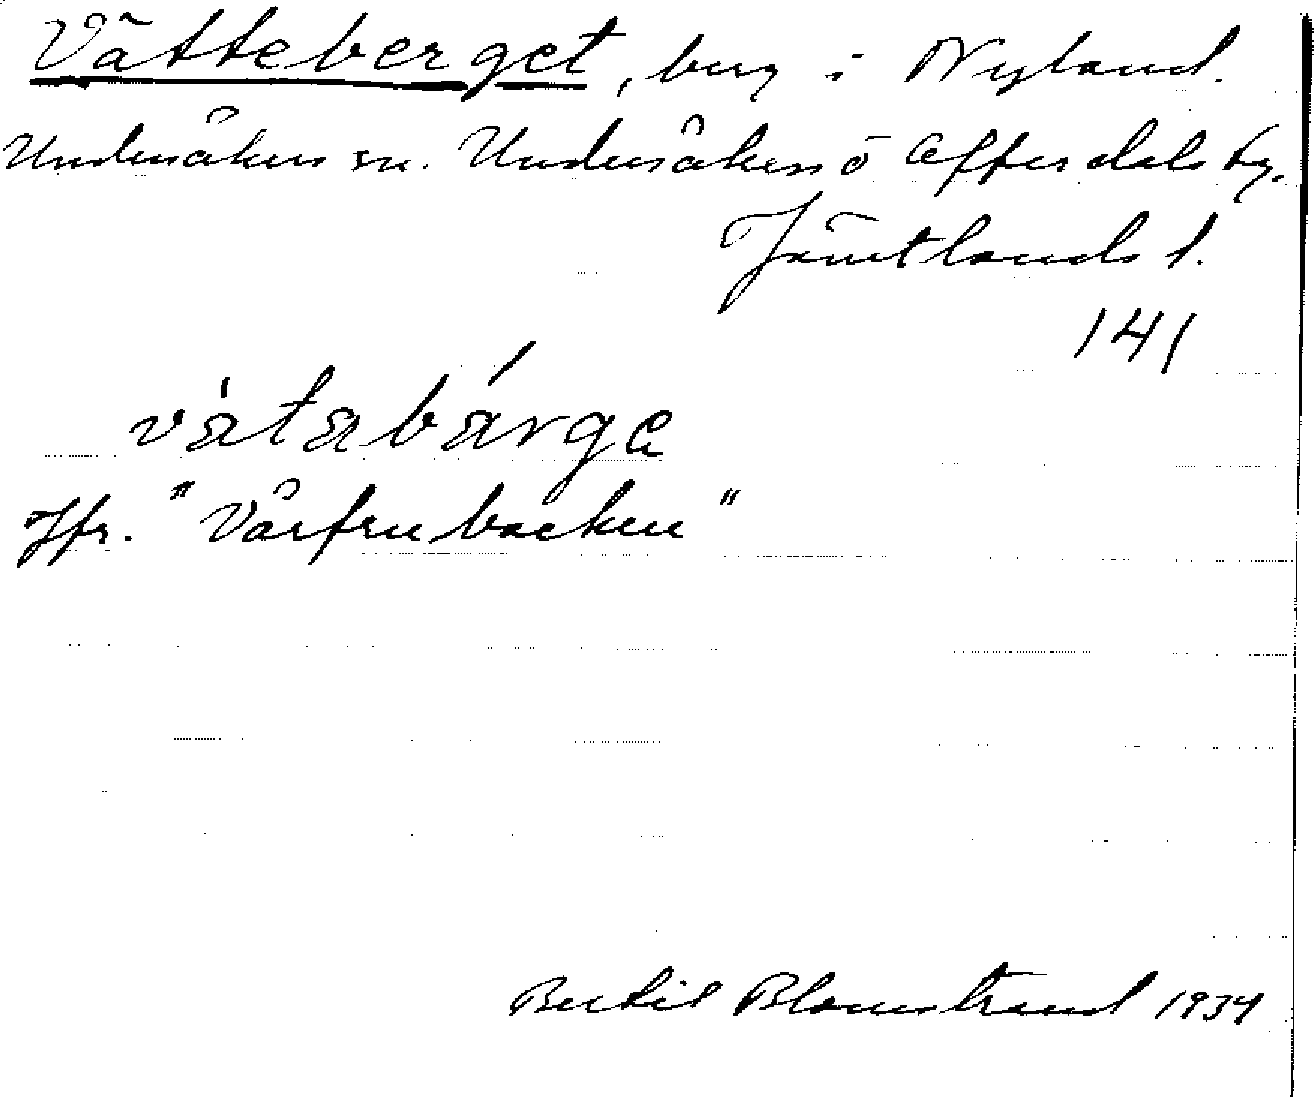 Vätteberget, berg i Nyland.
Undersåkers sn. Undersåkers o Offerdals tg.
Jämtlands l.
141
vàtabárga
Jfr. "Vårfrubacken"
Bertil Blomstrand 1934